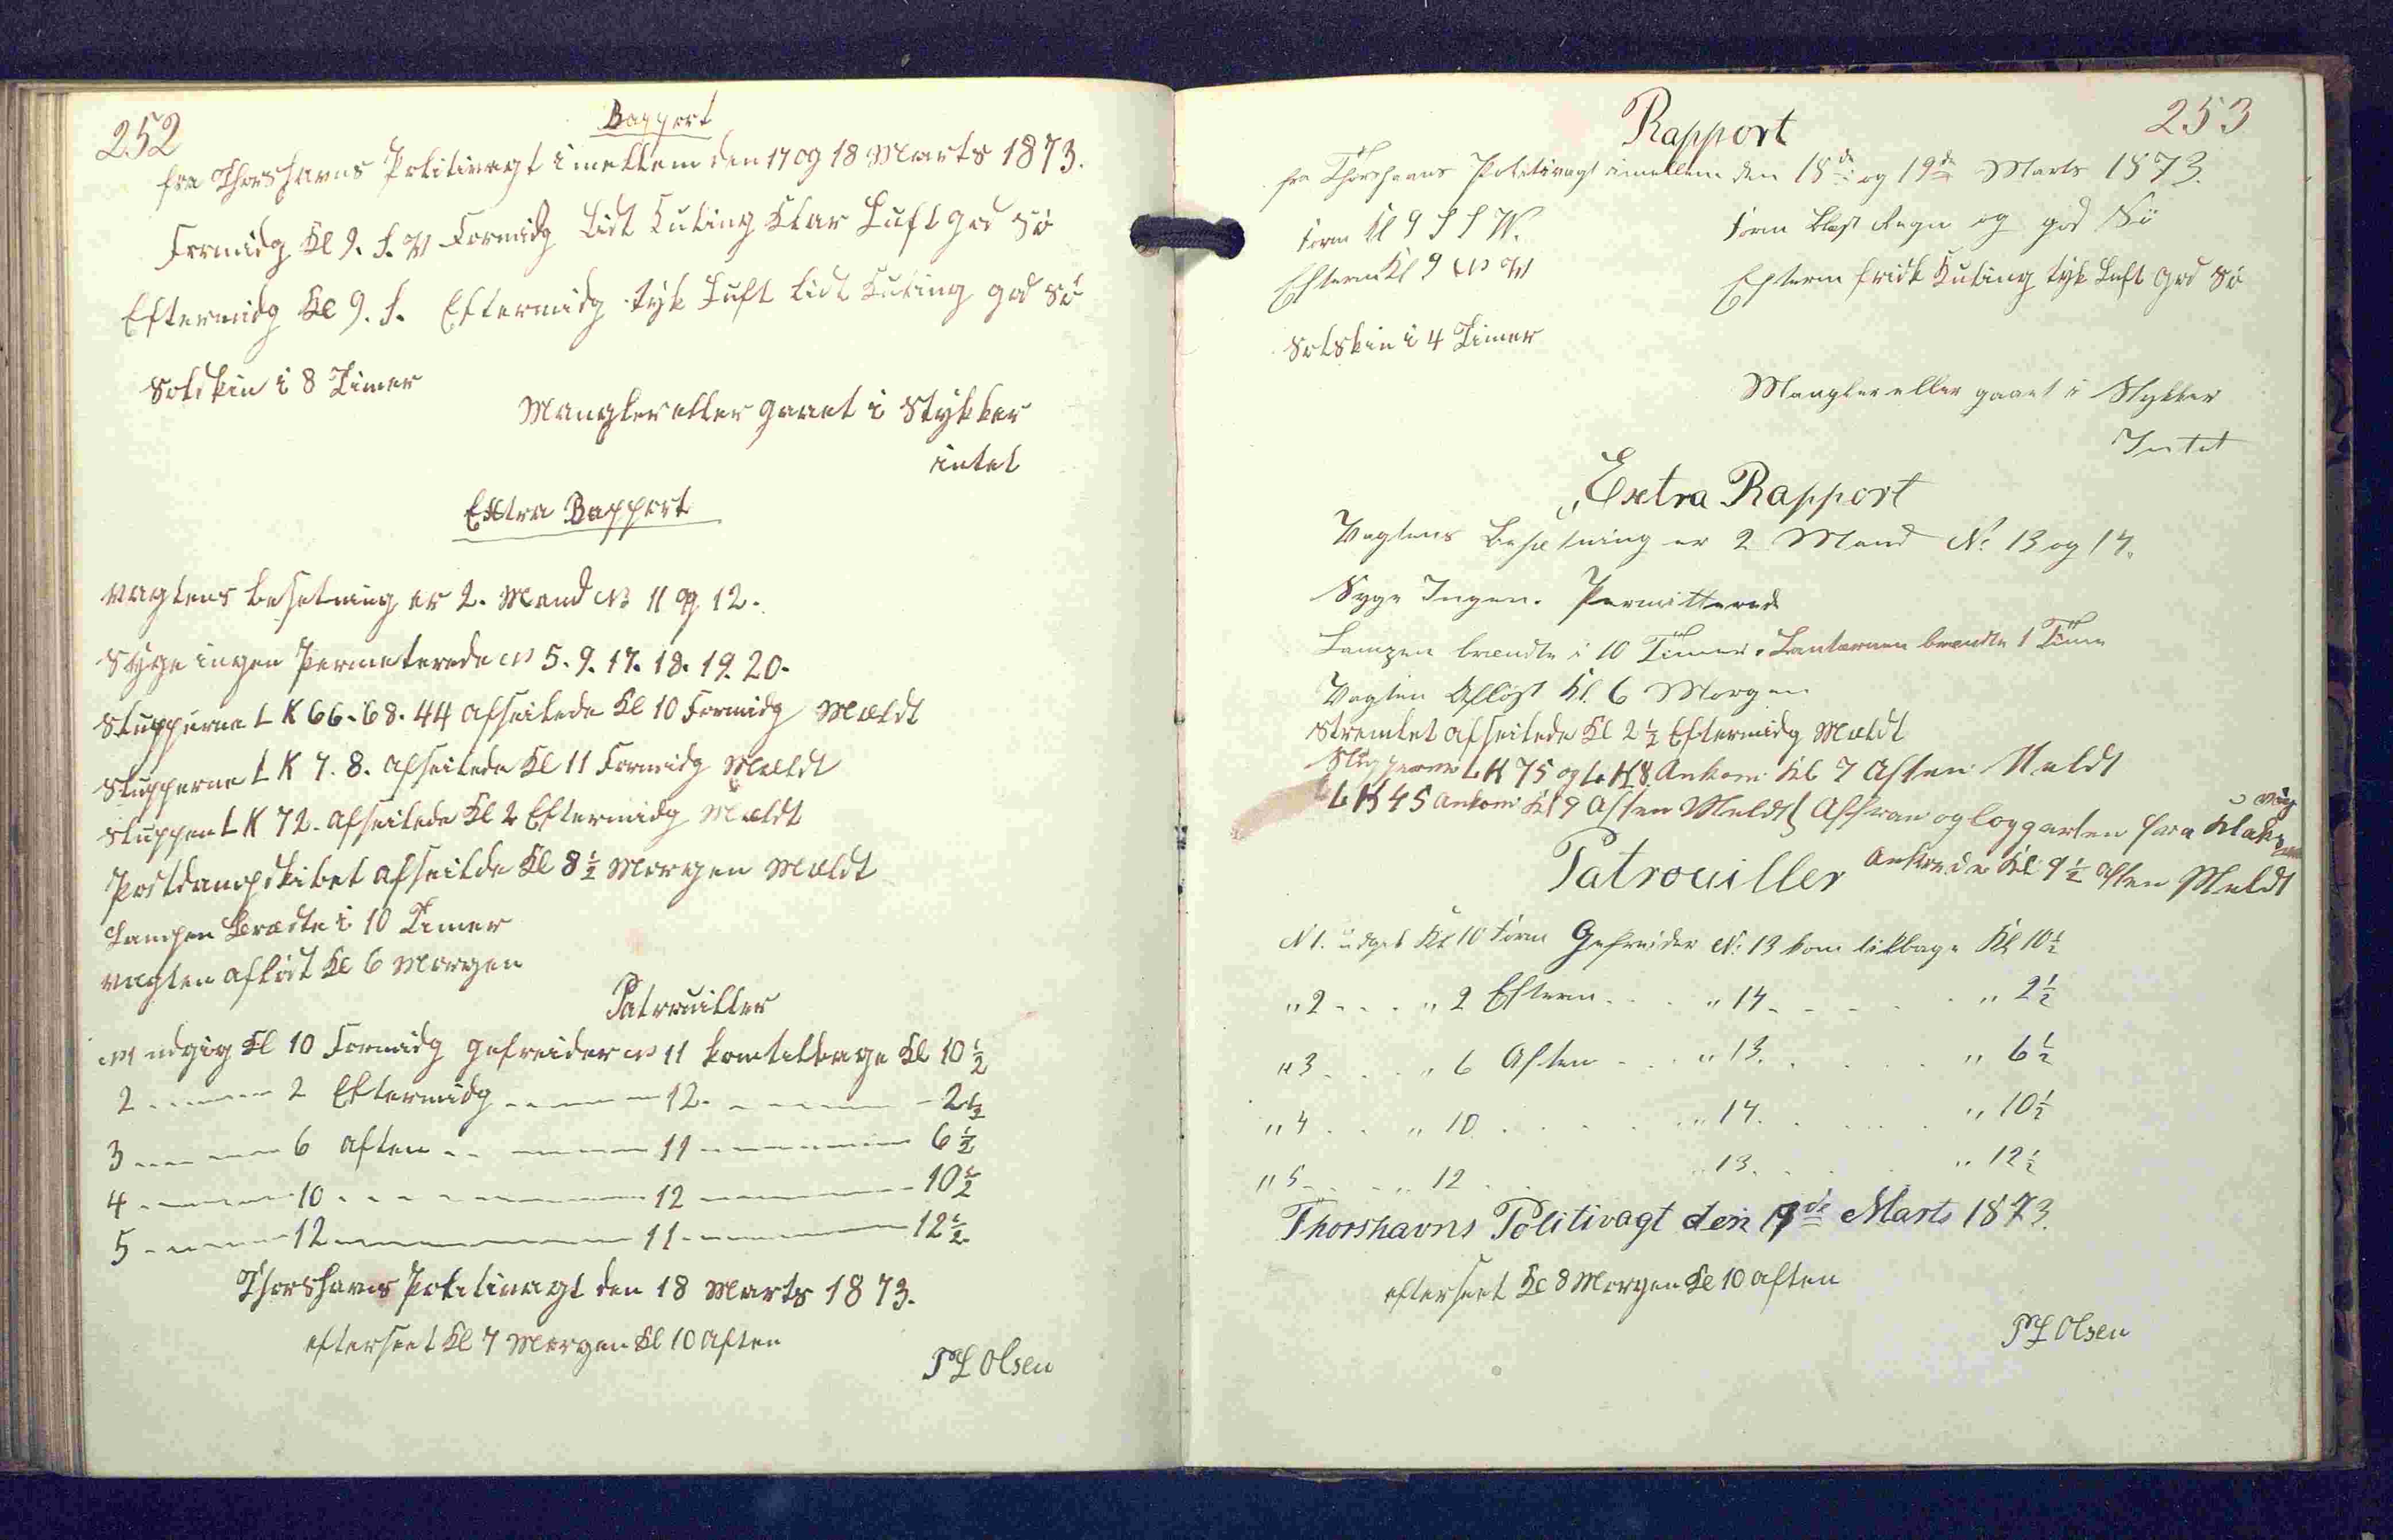 252
Rapport
fra Thorshavns Politivagt imellem den 17 og 18 Marts 1873.
Formidg Kl 9. S. W Formidg lidt Kuling Klar Luft god Sø
Eftermidg Kl 9. S. Eftermidg tyk Luft lidt Kuling god Sø
Solskin i 8 Timer
Mangler eller gaaet i Stykker
intet
Extra Rapport
Vagtens besetning er 2. Mand No 11 og 12.
Syge ingen Permeterede No 5. 9. 17. 18. 19. 20.
Slupperne L K 66. 68. 44 afseilede Kl 10 Formidg Mældt
Slupperne L K 7. 8. afseilede Kl 11 Formidg Mældt
Sluppen L K 72. afseilede Kl 2 Eftermidg Mældt
Postdampskibet afseilde Kl 8 1/2 Morgen Mældt
Lampen Brædte i 10 Timer
Vagten afløst Kl 6 Morgen
Patrouiller
No 1 udgig Kl 10 Formidg gefreider No 11 kom tilbage Kl 10 1/2
2 — 2 Eftermidg — 12. — 2 1/2
3 — 6 aften — 11 — 6 1/2
4 — 10 — 12 — 10 1/2
5 — 12 — 11 — 12 1/2
Thorshavns Politivagt den 18 Marts 1873.
efterseet Kl 7 Morgen Kl 10 Aften
Olsen
253
Rapport
fra Thorshavns Politivagt imellem den 18de og 19de Marts 1873.
Form Kl 9 S S W. Form Blæst Regn og god Sö
Efterm Kl 9 N W Efterm frisk Kuling tyk Luft god Sø
Solskin i 4 Timer
Mangler eller gaaet i Stykker
Intet
Extra Rapport
Vagtens Besætning er 2 Mand No 13 og 14.
Syge Ingen. Permitterede
Lampen brændte i 10 Timer. Lanternen brændte 1 Time
Vagten Afløst Kl. 6 Morgen
afseilede Kl 2 1/2 Eftermidg Mældt
Slupperne L K 75 og L K 8. Ankom Kl 7 Aften Meldt
L K 45 ankom Kl 9 Aften Meldt og fra Klaks
vig
Ankom Kl 9 1/2 Aften Meldt
Patrouiller
N 1. udgik Kl 10 Form Gefreider No 13 kom tilbage Kl 10 1/2
" 2 . . . " 2 Efterm . . . " 14 . . . " 2 1/2
" 3 . . . " 6 Aften . . " 13. . . . " 6 1/2
" 4 . . " 10 . . . . " 14. . . . " 10 1/2
" 5 . . . " 12 . . . " 13. . . . " 12 1/2
Thorshavns Politivagt den 19de Marts 1873.
efterseet Kl 8 Morgen Kl 10 Aften
Olsen